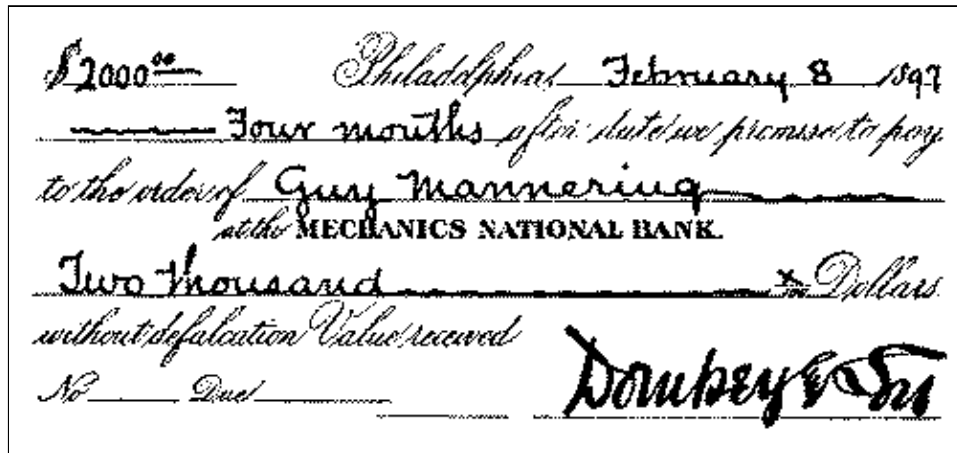 $2000.00 Philadelphia, February 8 1897
Four months after date we promise to pay
to the order of Guy Mannering
at the MECHANICS NATIONAL BANK.
Two thousand x/100 Dollars
without defalcation Value received
No Due Dombey & Son